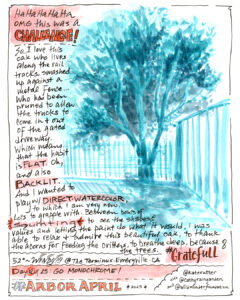 HaHaHaHaHa
OMG this was a
CHALLENGE!
So, I love this
oak who lives
along the rail
tracks, smashed
up against a
metal fence.
Who has been
pruned to allow
the trucks to
come in & out
of the gated
driveway
which means
that the habit
is FLAT. Oh,
and also
BACKLIT.
And I wanted to
play w/ DIRECT WATERCOLOR
to which I am very new.
Lots to grapple with. Between bouts of
squinting to see the shapes
values and letting the paint do what it would, I was
able to relax & admire this beautiful oak, to thank
the acorns for feeding the critters, to breathe deep, because of
the trees.
Gratefull
52° @ the Terminal Emeryville CA
Day 15: GO MONOCHROME!
#ARBOR APRIL